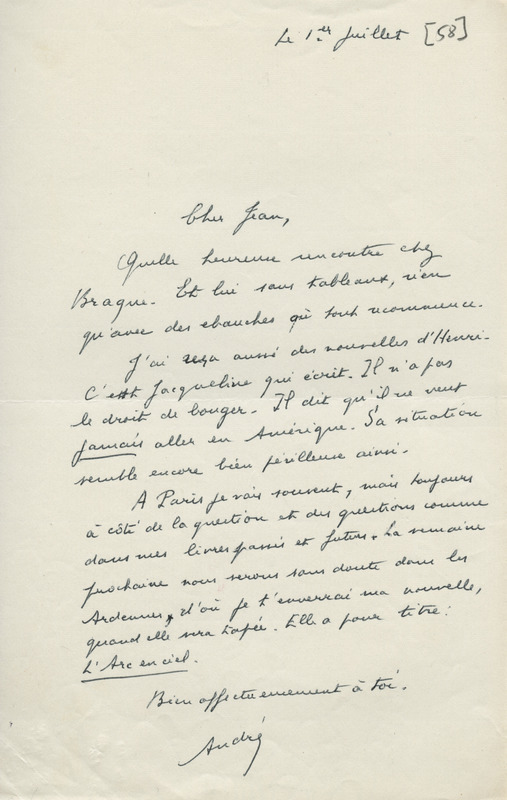 Le 1er Juillet [58]
Cher Jean,
Quelle heureuse rencontre chez
Braque. Et lui sans tableaux, rien
qu'avec des ebauches où tout recommence.
J'ai reçu aussi des nouvelles d'Henri.
C'est Jacqueline qui écrit. Il n'a pas
le droit de bouger. Il dit qu'il ne veut
jamais aller en Amérique. Sa situation
semble encore bien périlleuse ainsi.
A Paris je vais souvent, mais toujours
à côté de la question et des questions comme
dans mes livres passés et futurs. La semaine
prochaine nous serons sans doute dans les
Ardennes, d'où je t'enverrai ma nouvelle,
quand elle sera tapée. Elle a pour titre :
L'Arc en ciel.
Bien affectueusement à toi.
André